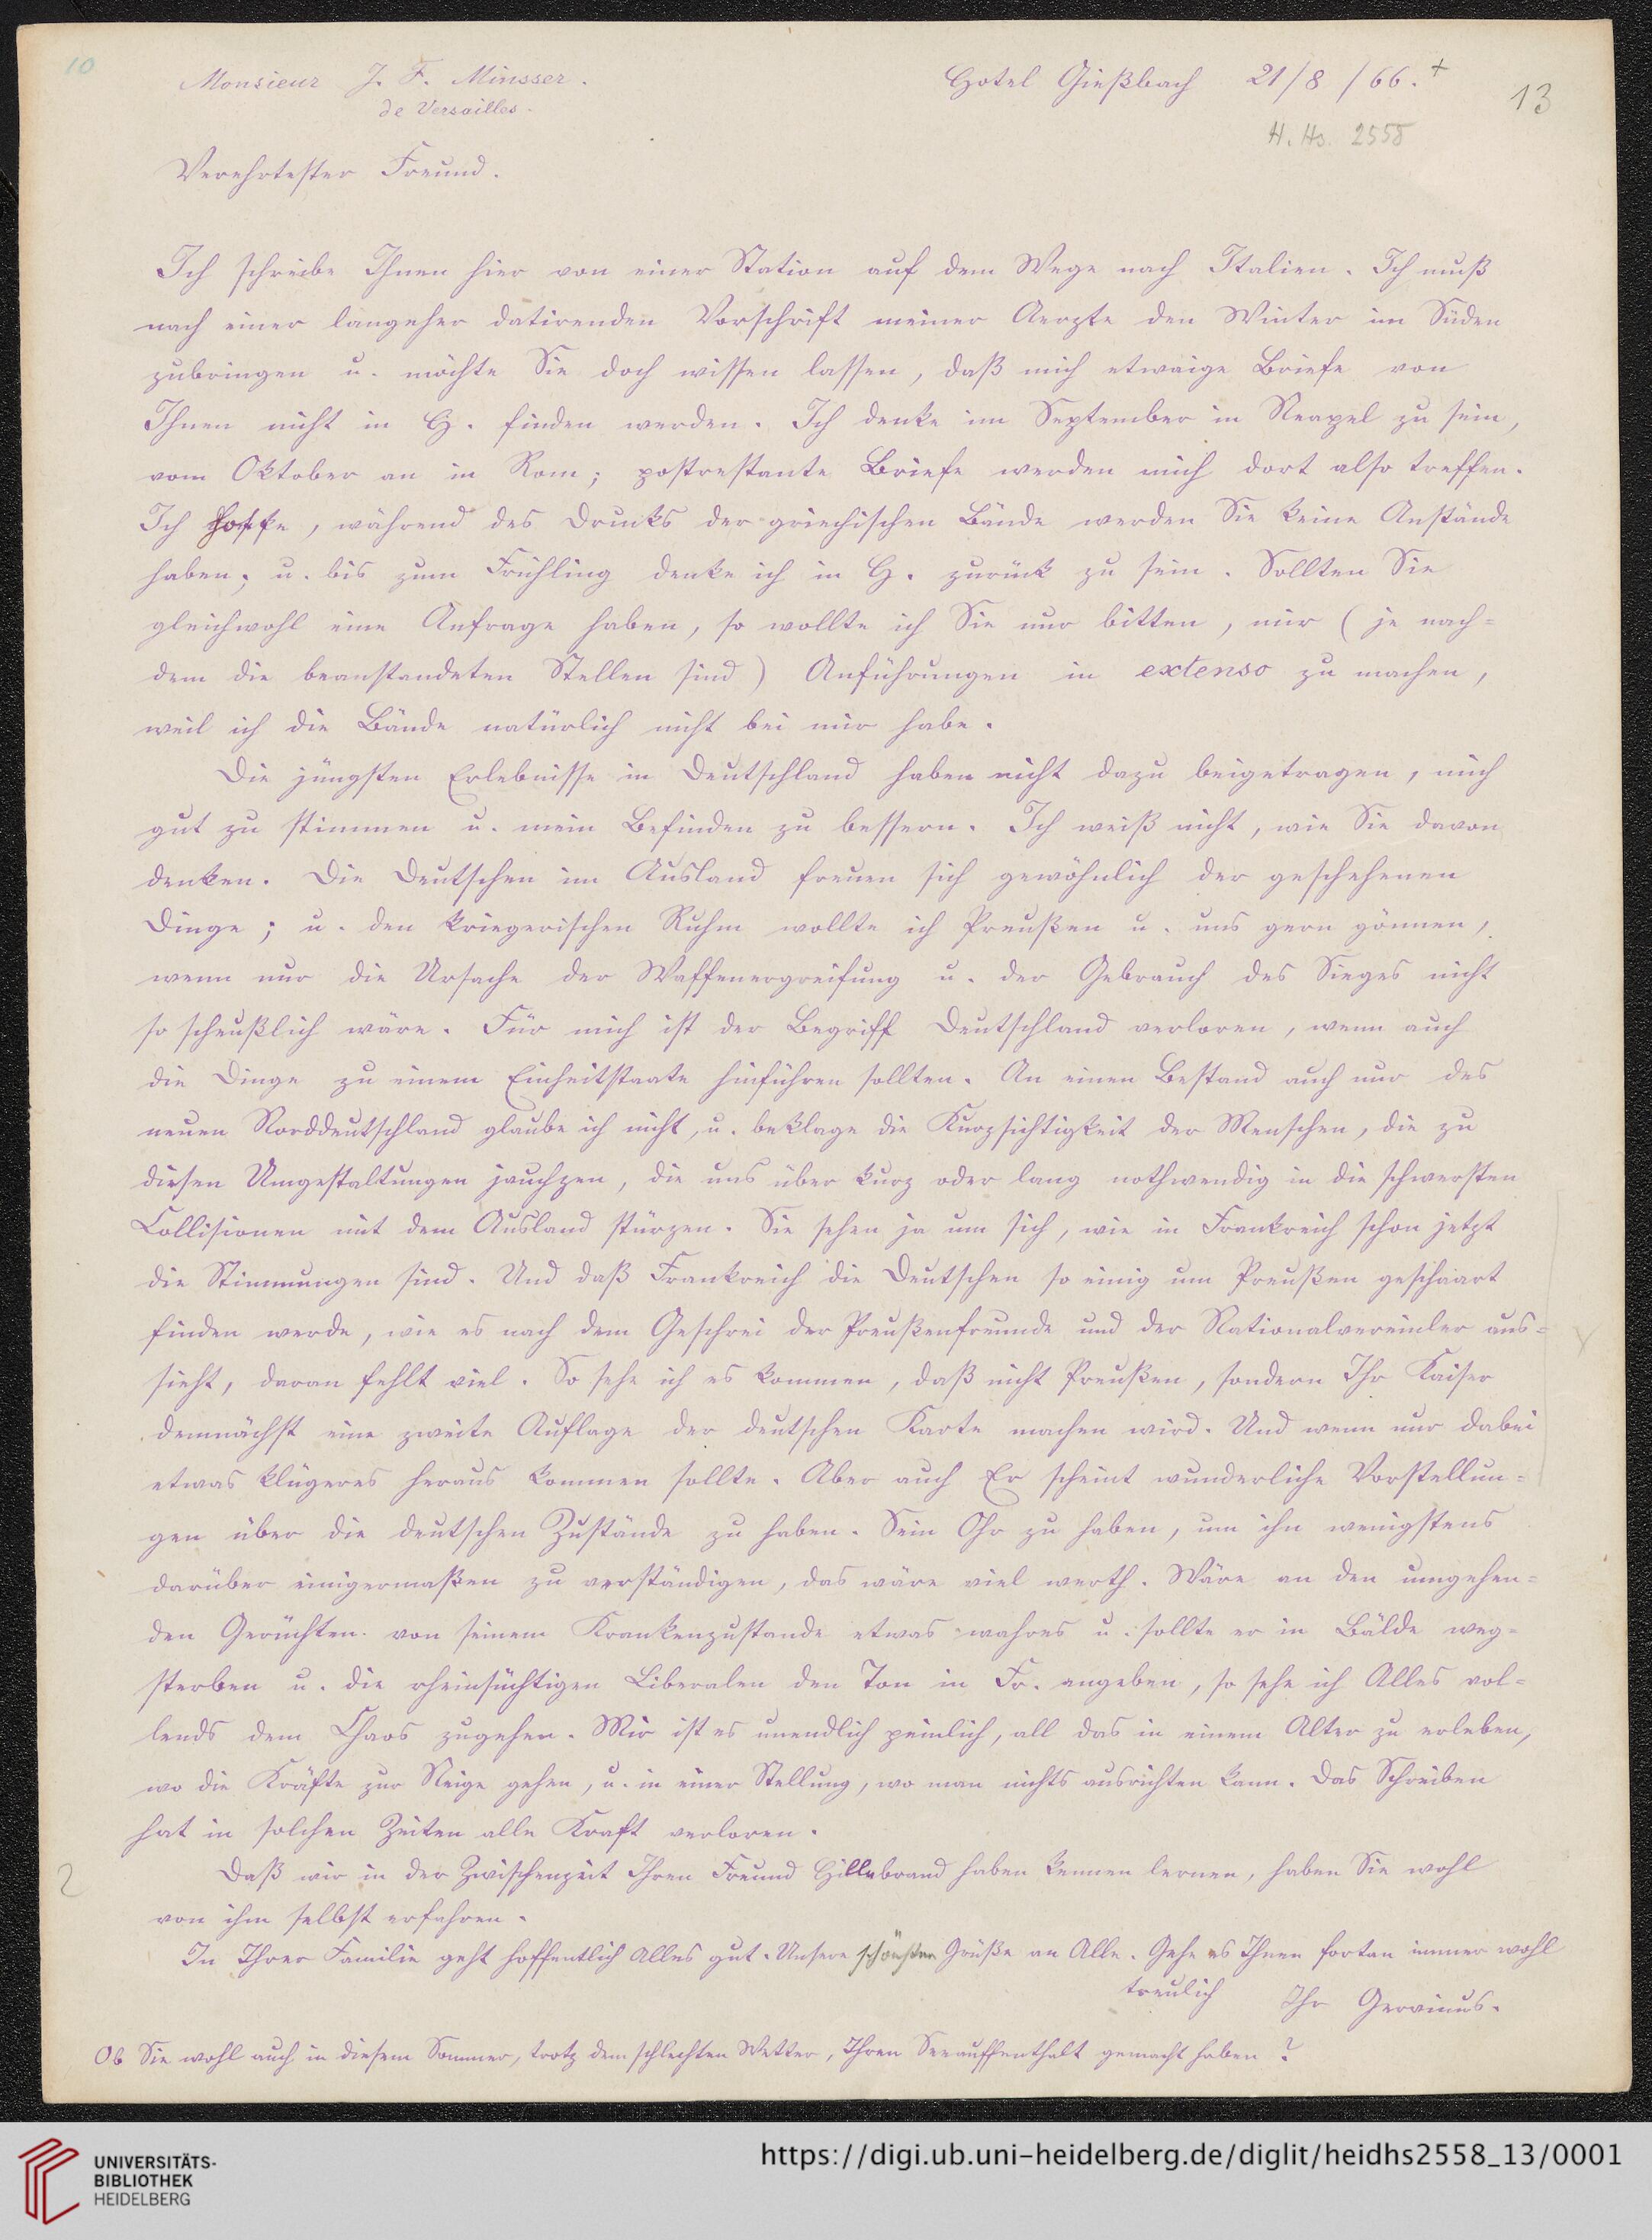 10
Monsieur J. F. Minsser.
de Versailles.
Hotel Gießbach 21/8/66. +
13
H. Hs. 2558
Verehrtester Freund.
Ich schreibe Ihnen hier von einer Station auf dem Wege nach Italien. Ich muß
nach einer langeher datirenden Vorschrift meiner Aerzte den Winter im Süden
zubringen u. möchte Sie doch wissen lassen, daß mich etwaige Briefe von
Ihnen nicht in H. finden werden. Ich denke im September in Neapel zu sein,
vom Oktober an in Rom; postrestante Briefe werden mich dort also treffen.
Ich hoffe, während des Drucks der griechischen Bände werden Sie keine Anstände
haben; u. bis zum Frühling denke ich in H. zurück zu sein. Sollten Sie
gleichwohl eine Anfrage haben, so wollte ich Sie nur bitten, mir (je nach=
dem die beanstandeten Stellen sind) Anführungen in extenso zu machen,
weil ich die Bände natürlich nicht bei mir habe.
Die jüngsten Erlebnisse in Deutschland haben nicht dazu beigetragen, mich
gut zu stimmen u. mein Befinden zu bessern. Ich weiß nicht, wie Sie davon
denken. Die Deutschen im Ausland freuen sich gewöhnlich der geschehenen
Dinge; u. den kriegerischen Ruhm wollte ich Preußen u. uns gern gönnen,
wenn nur die Ursache der Waffenergreifung u. der Gebrauch des Sieges nicht
so scheußlich wäre. Für mich ist der Begriff Deutschland verloren, wenn auch
die Dinge zu einem Einheitstaate hinführen sollten. An einen Bestand auch nur des
neuen Norddeutschland glaube ich nicht, u. beklage die Kurzsichtigkeit der Menschen, die zu
diesen Umgestaltungen jauchzen, die uns über kurz oder lang nothwendig in die schwersten
Collisionen mit dem Ausland stürzen. Sie sehen ja um sich, wie in Frankreich schon jetzt
die Stimmungen sind. Und daß Frankreich die Deutschen so einig um Preußen geschaart
finden werde, wie es nach dem Geschrei der Preußenfreunde und der Nationalvereinler aus=
sieht, daran fehlt viel. So sehe ich es kommen, daß nicht Preußen, sondern Ihr Kaiser
demnächst eine zweite Auflage der deutschen Karte machen wird. Und wenn nur dabei
etwas klügeres heraus kommen sollte. Aber auch Er scheint wunderliche Vorstellun=
gen über die deutschen Zustände zu haben. Sein Ohr zu haben, um ihn wenigstens
darüber einigermaßen zu verständigen, das wäre viel werth. Wäre an den umgehen=
den Gerüchten von seinem Krankenzustande etwas wahres u. sollte er in Bälde weg=
sterben u. die rheinsüchtigen Liberalen den Ton in Fr. angeben, so sehe ich Alles vol=
lends dem Chaos zugehen. Mir ist es unendlich peinlich, all das in einem Alter zu erleben,
wo die Kräfte zur Neige gehen, u. in einer Stellung, wo man nichts ausrichten kann. Das Schreiben
hat in solchen Zeiten alle Kraft verloren.
2
Daß wir in der Zwischenzeit Ihren Freund Hillebrand haben kennen lernen, haben Sie wohl
von ihm selbst erfahren.
In Ihrer Familie geht hoffentlich Alles gut. Unsere schönsten Grüße an Alle. Gehe es Ihnen fortan immer wohl
treulich Ihr Gervinus.
Ob Sie wohl auch in diesem Sommer, trotz dem schlechten Wetter, Ihren Seeauffenthalt gemacht haben?
UNIVERSITÄTS-
BIBLIOTHEK
HEIDELBERG
https://digi.ub.uni-heidelberg.de/diglit/heidhs2558_13/0001